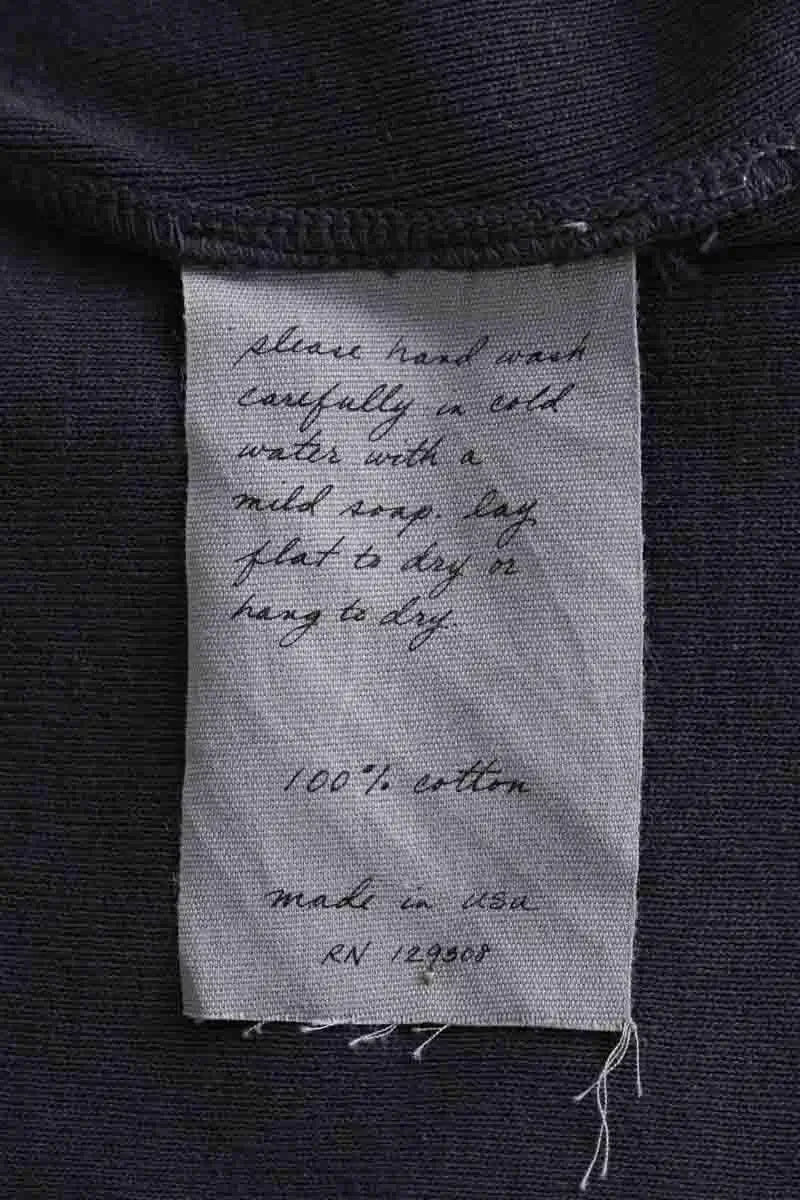 please hand wash
carefully in cold
water with a
mild soap. lay
flat to dry or
hang to dry.
100% cotton
made in usa
RN 129308